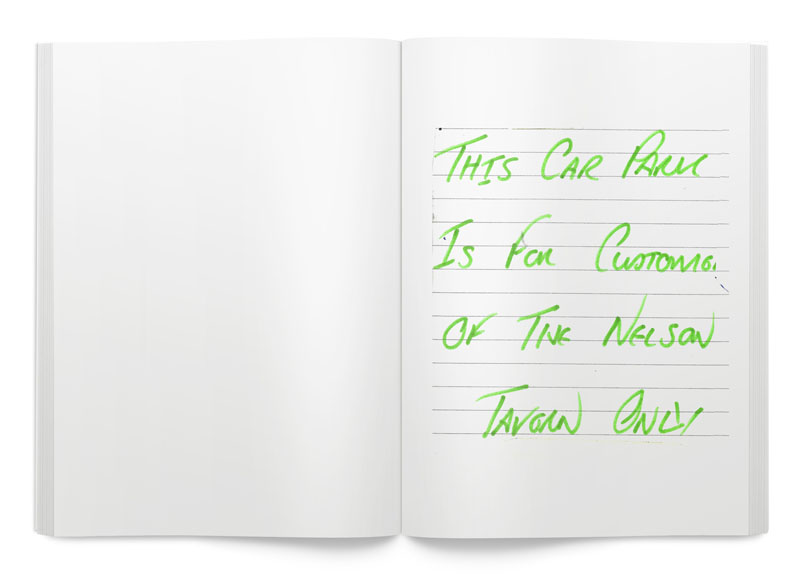 THIS CAR PARK
IS FOR
OF THE NELSON
TAVERN ONLY